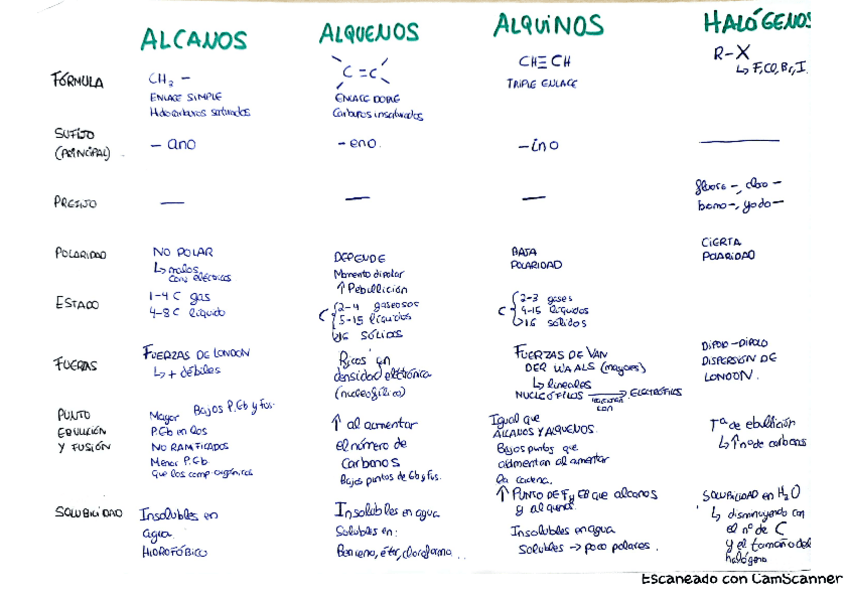 ALCANOS
ALQUENOS
ALQUINOS
HALÓGENOS
FÓRMULA
CH3 —
ENLACE SIMPLE
Hidrocarburos saturados
C=C
ENLACE DOBLE
Carburos insaturados
CH≡CH
TRIPLE ENLACE
R-X
↳ F, Cl, Br, I.
SUFIJO
(PRINCIPAL)
- ano
- eno.
- ino
PREFIJO
fluoro -, cloro -
bromo -, yodo -
POLARIDAD
NO POLAR
↳ malos
con eléctricos
DEPENDE
Momento dipolar
↑ Pebullición
BAJA
POLARIDAD
CIERTA
POLARIDAD
ESTADO
1-4 C gas
4-8 C líquido
C
2-4 gaseosos
5-15 líquidos
16 sólidos
C
2-3 gases
4-15 líquidos
16 sólidos
FUERZAS
FUERZAS DE LONDON
↳ + débiles
Ricos en
densidad eltrónica
(nucleofílico)
FUERZAS DE VAN
DER WAALS (mayores)
↳ lineales
NUCLEÓFILOS → ELECTRÓFILOS
CON
DIPOLO-DIPOLO
DISPERSIÓN DE
LONDON.
PUNTO
EBULLICIÓN
Y FUSIÓN
Bajos P.Eb y fus.
Mayor
P.Eb en los
NO RAMIFICADOS
Menor P.Eb
que los comp. orgánicos
↑ al aumentar
el número de
carbonos
Bajos puntos de Eb y fus.
Igual que
ALCANOS Y ALQUENOS.
Bajos puntos que
aumentan al aumentar
la cadena.
↑ PUNTO DE F y EB que alcanos
y alquenos
Tª de ebullición
↳ ↑ nº de carbonos
SOLUBILIDAD
Insolubles en
agua
HIDROFÓBICO
Insolubles en agua
Solubles en:
Benceno, éter, cloroformo...
Insolubles en agua
Solubles → poco polares.
SOLUBILIDAD en H2O
↳ disminuyendo con
el nº de C
y el tamaño del
halógeno
Escaneado con CamScanner